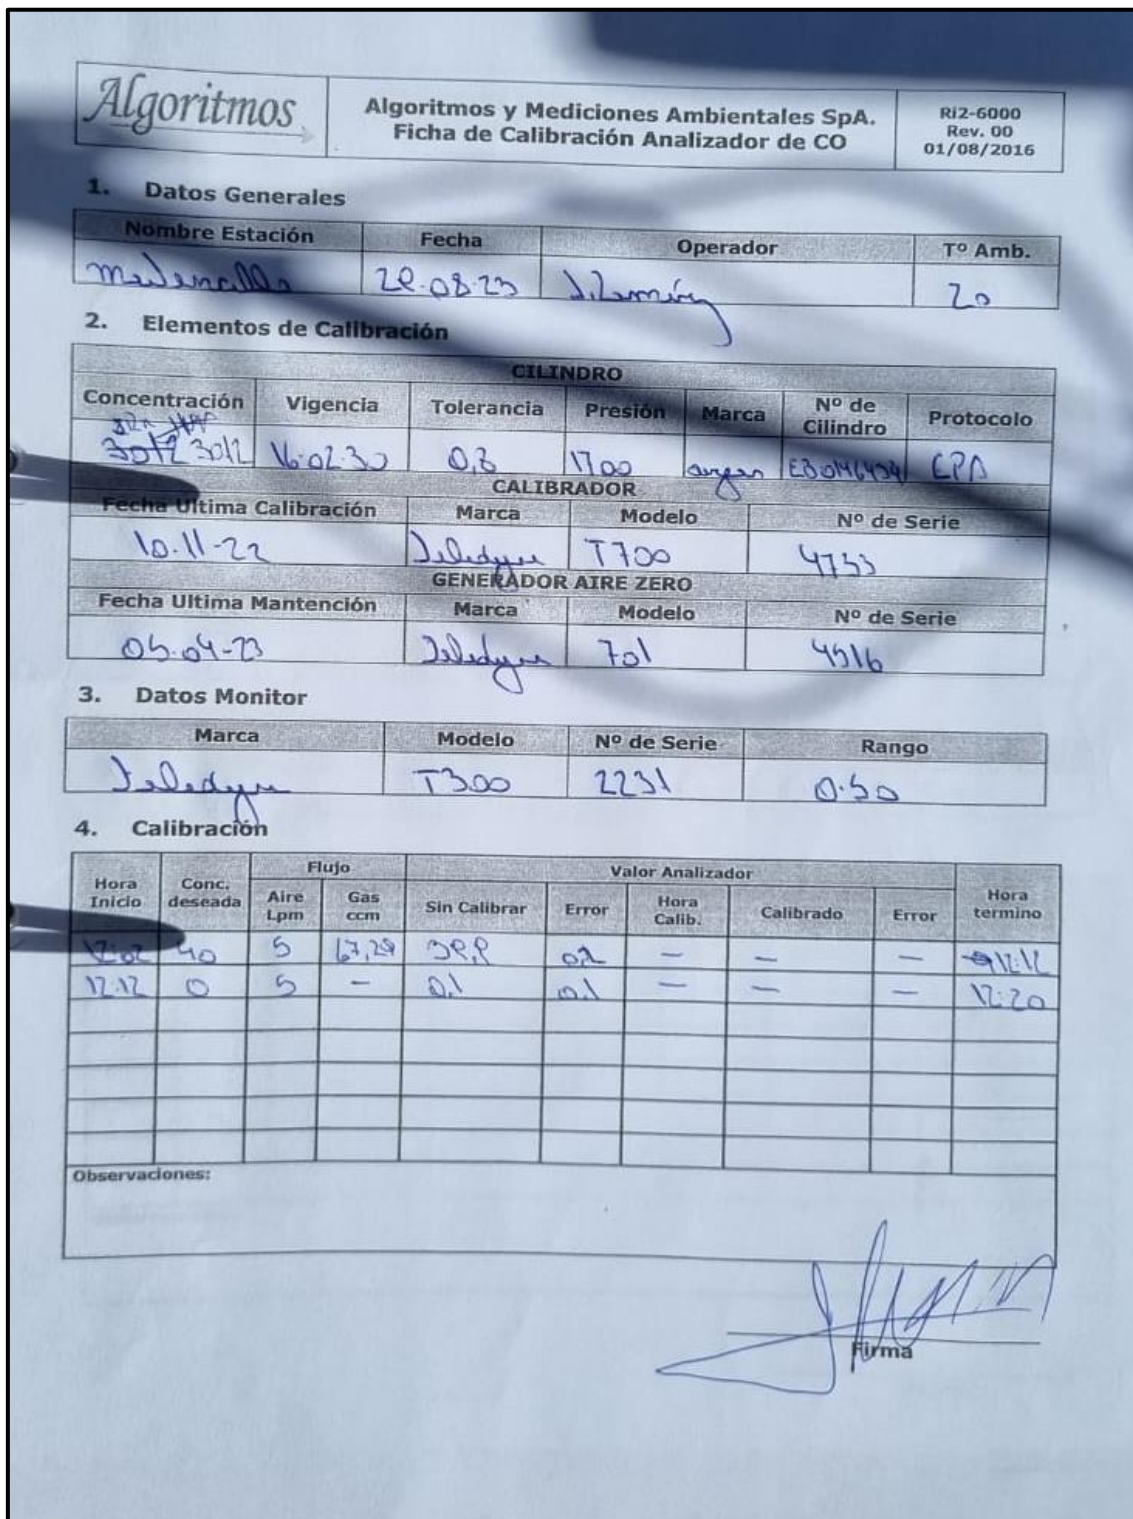 Algoritmos
Algoritmos y Mediciones Ambientales SpA.
Ficha de Calibración Analizador de CO
Ri2-6000
Rev. 00
01/08/2016
1. Datos Generales
Nombre Estación Fecha Operador Tº Amb.
08-23 20
2. Elementos de Calibración
CILINDRO
Concentración Vigencia Tolerancia Presión Marca Nº de Cilindro Protocolo
3012 3012 16-02-30 1700 EPA
CALIBRADOR
Fecha Ultima Calibración Marca Modelo Nº de Serie
10-11-22 Teledyne T700 4733
GENERADOR AIRE ZERO
Fecha Ultima Mantención Marca Modelo Nº de Serie
05-04-23 Teledyne 701
3. Datos Monitor
Marca Modelo Nº de Serie Rango
Teledyne T300 2231 0-50
4. Calibración
Hora Inicio Conc. deseada Flujo Valor Analizador Hora termino
Aire Lpm Gas ccm Sin Calibrar Error Hora Calib. Calibrado Error
12:02 40 5 — — — 12:12
12:12 0 5 — 0,1 0,1 — — — 12:20
Observaciones:
Firma